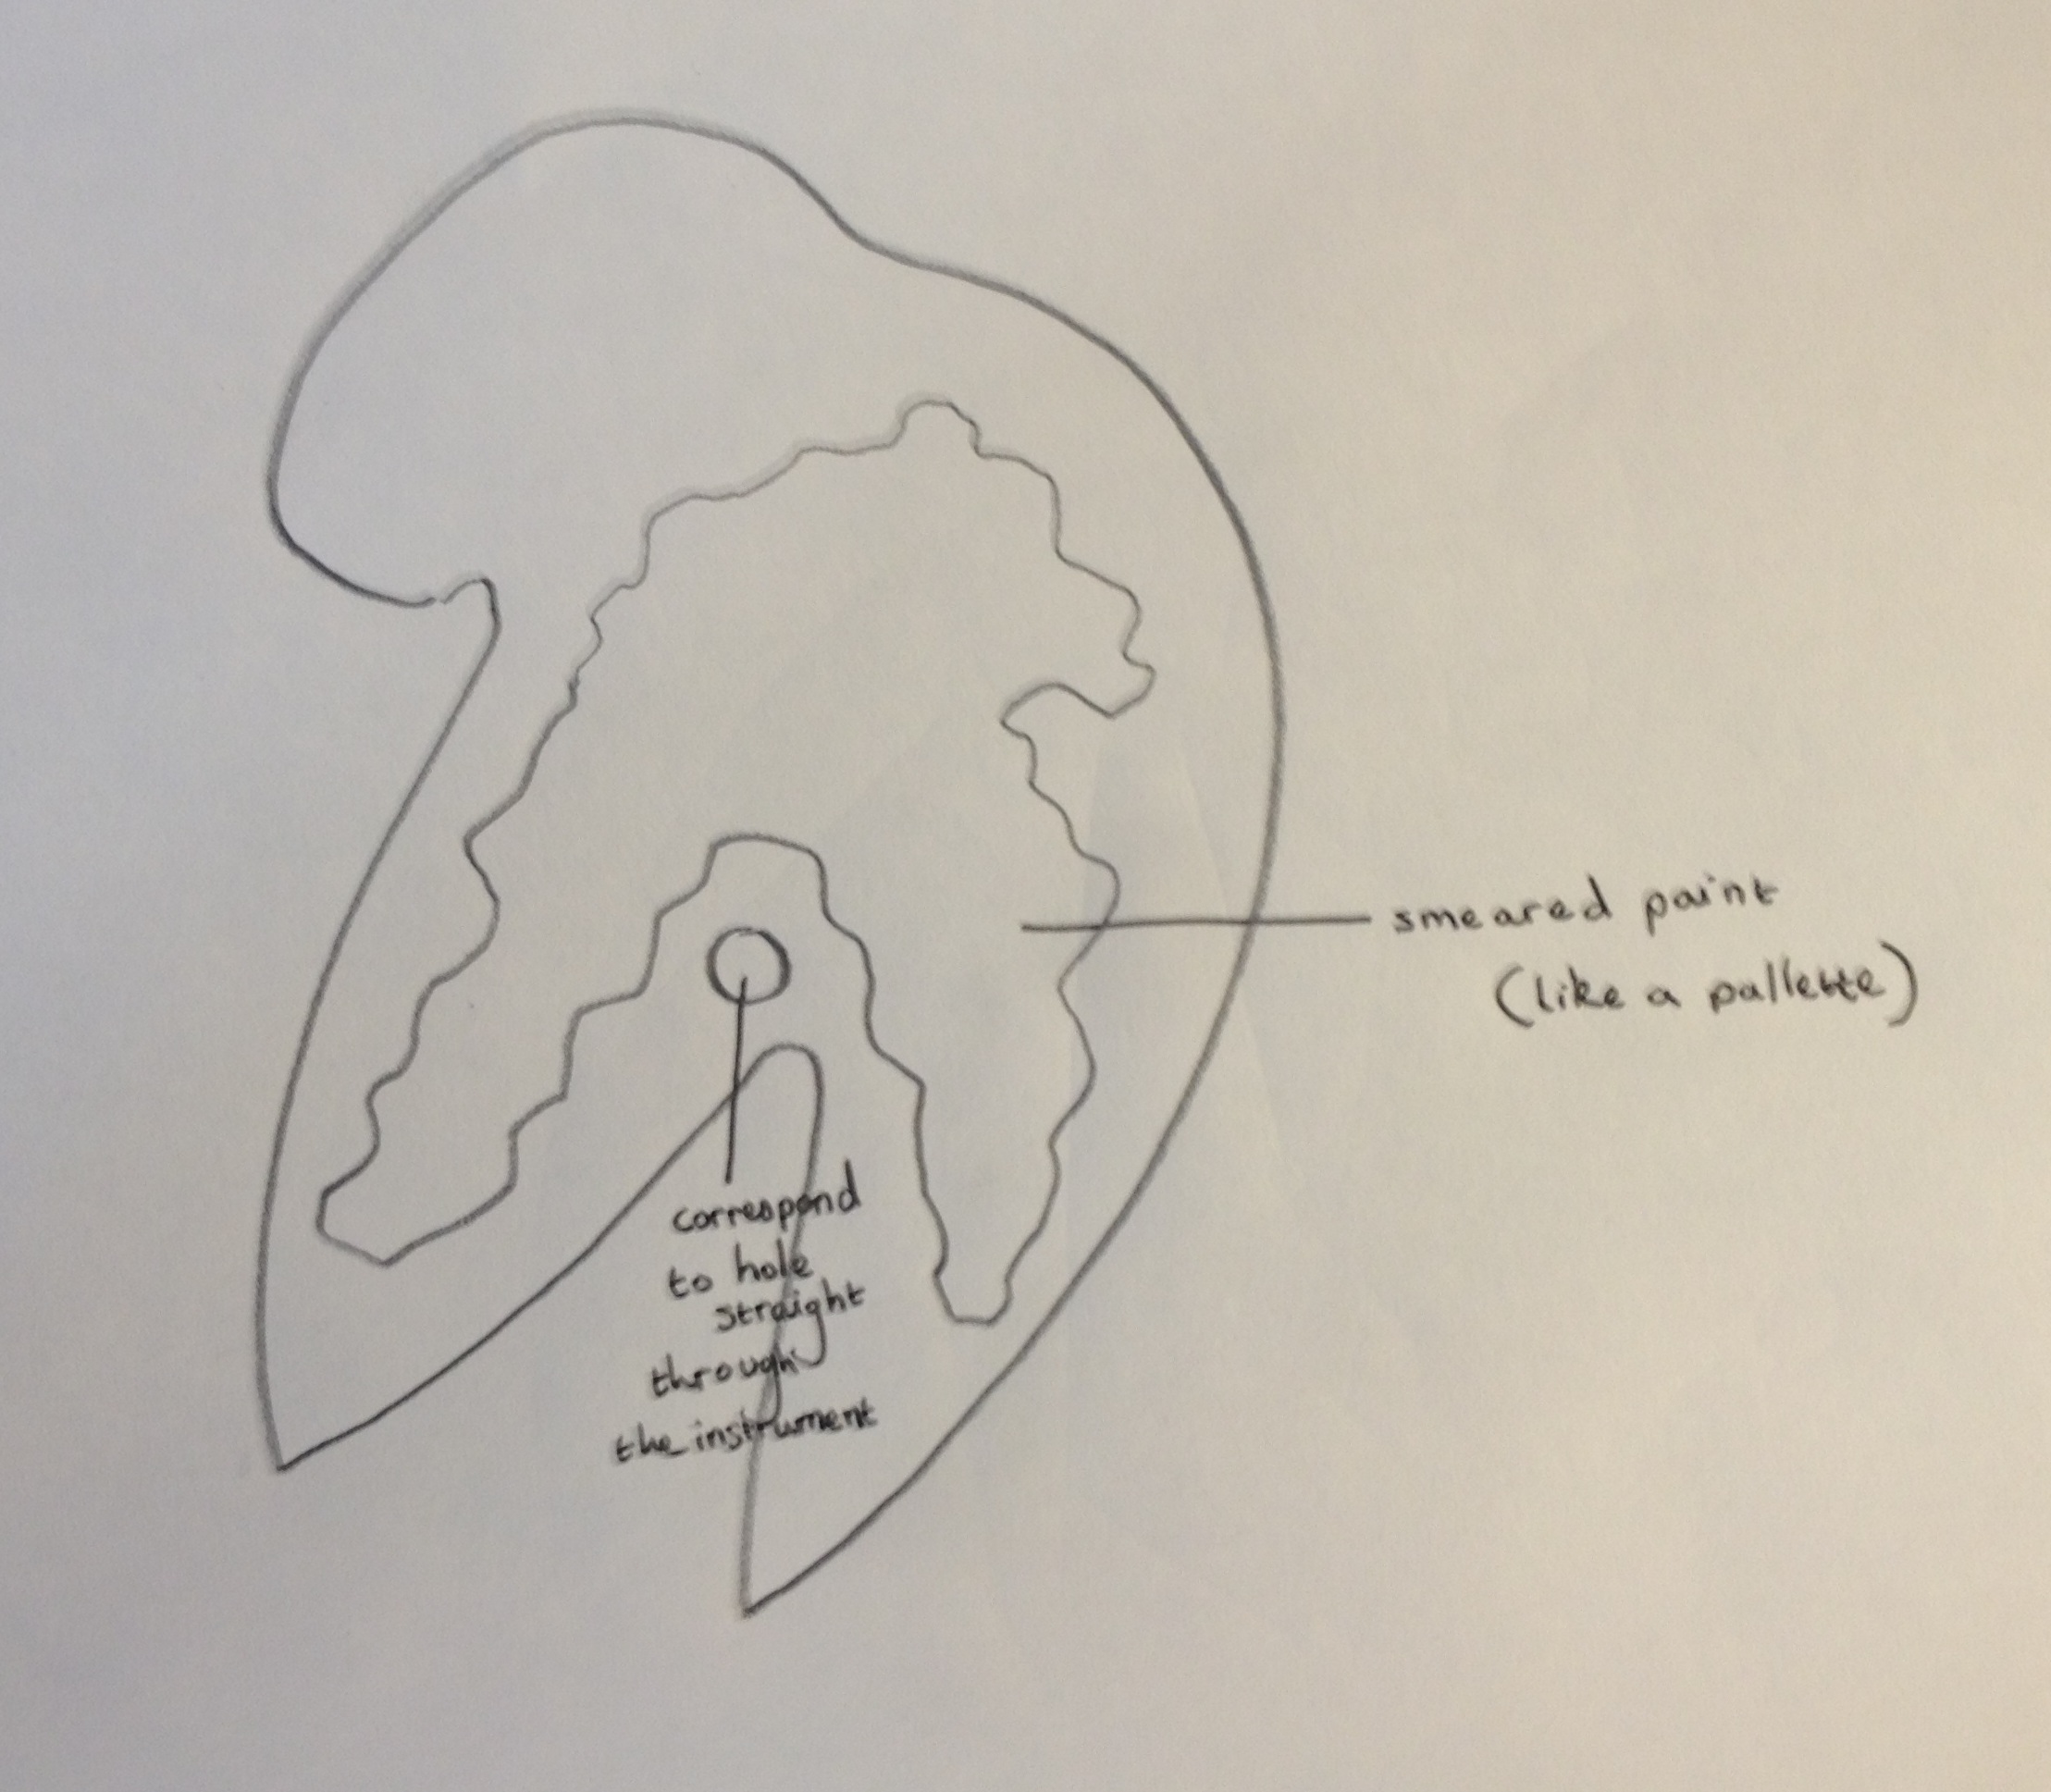 smeared paint
(like a pallette)
correspond
to hole
straight
through
the instrument